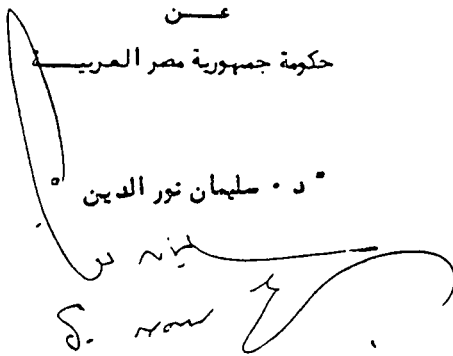 عــن
حكومة جمهورية مصر العربيــة
"د . سليمان نور الدين